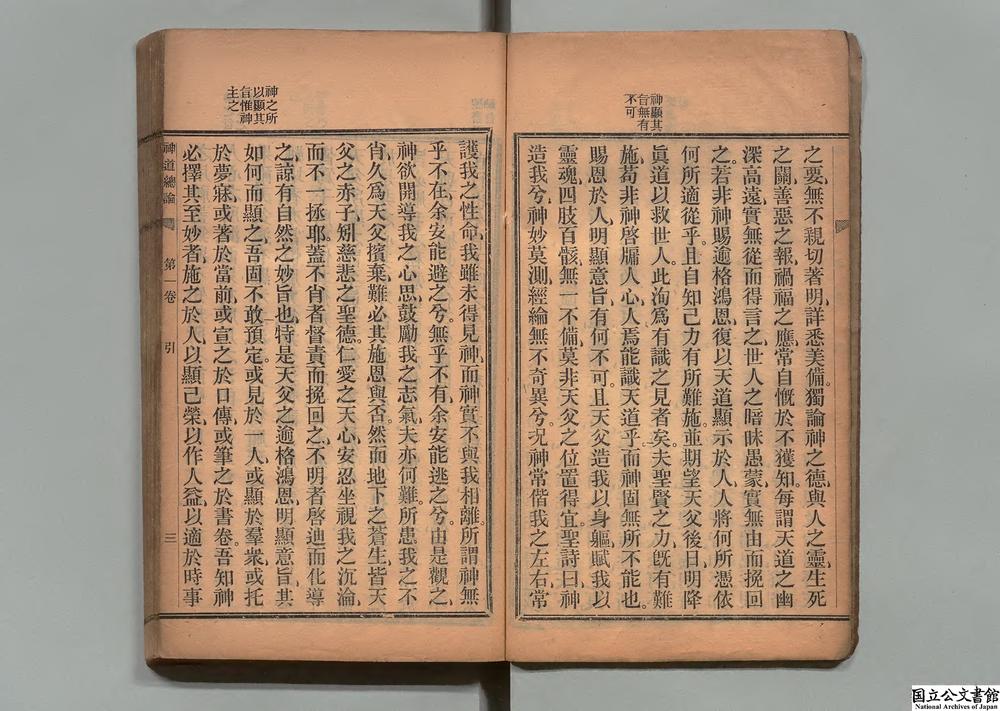 神顯其
旨無有
不可
之要、無不親切著明、詳悉美備。獨論神之德、與人之靈、生死
之關、善惡之報、禍福之應、常自慨於不獲知、每謂天道之幽
深高遠、實無從而得言之、世人之暗昧愚蒙、實無由而挽回
之。若非神賜逾格鴻恩、復以天道顯示於人、人將何所憑依
何所適從乎。且自知己力有所難施、並期望天父後日明降
眞道以救世人、此洵爲有識之見者矣。夫聖賢之力、旣有難
施、苟非神啓牖人心、人焉能識天道乎。而神固無所不能也。
賜恩於人、明顯意旨、有何不可。且天父造我以身軀、賦我以
靈魂、四肢百骸、無一不備、莫非天父之位置得宜。聖詩曰、神
造我兮、神妙莫測、經綸無不奇異兮。况神常偕我之左右、常
神之所
以顯其
旨惟神
主之
護我之性命、我雖未得見神、而神實不與我相離。所謂神無
乎不在、余安能避之兮。無乎不有、余安能逃之兮。由是觀之、
神欲開導我之心思、鼓勵我之志氣、夫亦何難。所患我之不
肖、久爲天父擯棄、難必其施恩與否。然而地下之蒼生、皆天
父之赤子、矧慈悲之聖德、仁愛之天心、安忍坐視我之沉淪、
而不一拯耶。蓋不肖者督責而挽回之、不明者啓迪而化導
之、諒有自然之妙旨也。特是天父之逾格鴻恩、明顯意旨、其
如何而顯之、吾固不敢預定。或見於一人、或顯於羣衆、或托
於夢寐、或著於當前、或宣之於口傳、或筆之於書卷。吾知神
必擇其至妙者、施之於人、以顯己榮、以作人益、以適於時事
神道總論
第一卷
引
三
国立公文書館
National Archives of Japan